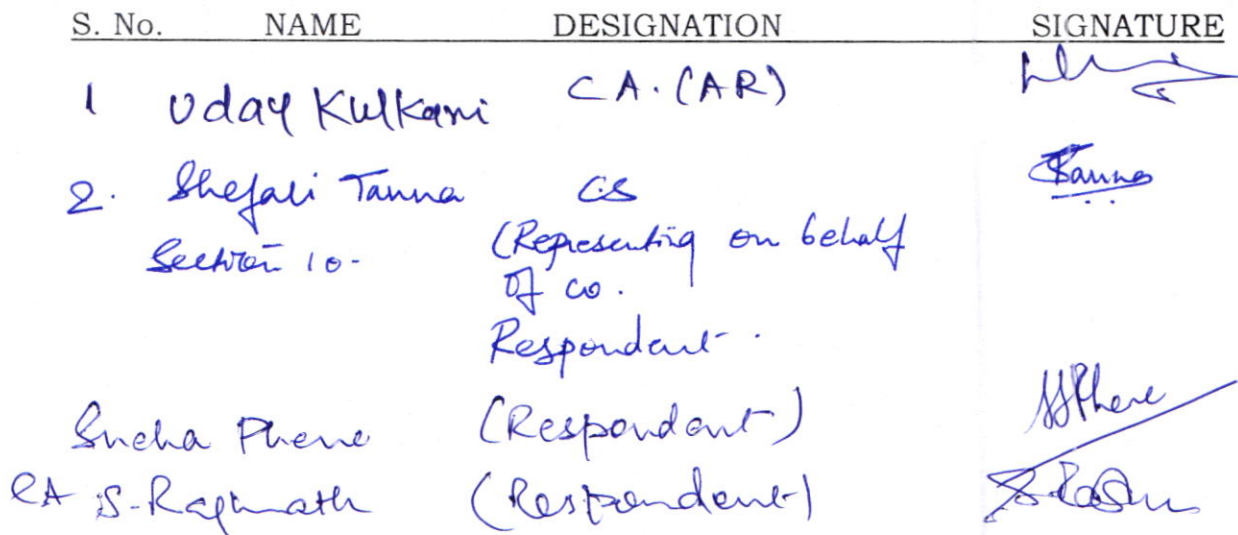 S. No. NAME DESIGNATION SIGNATURE
1 Uday Kulkarni C A. (AR)
2. Shefali Tanna CS Tanna
Section 10. (Representing on behalf
of co.
Respondent.
Sneha Phene (Respondent) SSPhene
CA S. Raghunath (Respondent)